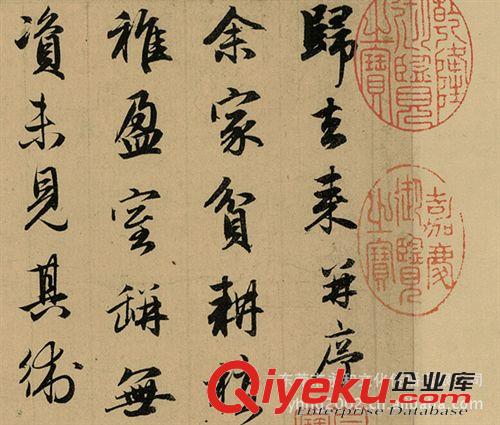 乾隆御覽之寶
嘉慶御覽之寶
歸去来并序
余家貧耕植
稚盈室缾無
資未見其術
Qiyeku.com 企业库
Enterprise Database